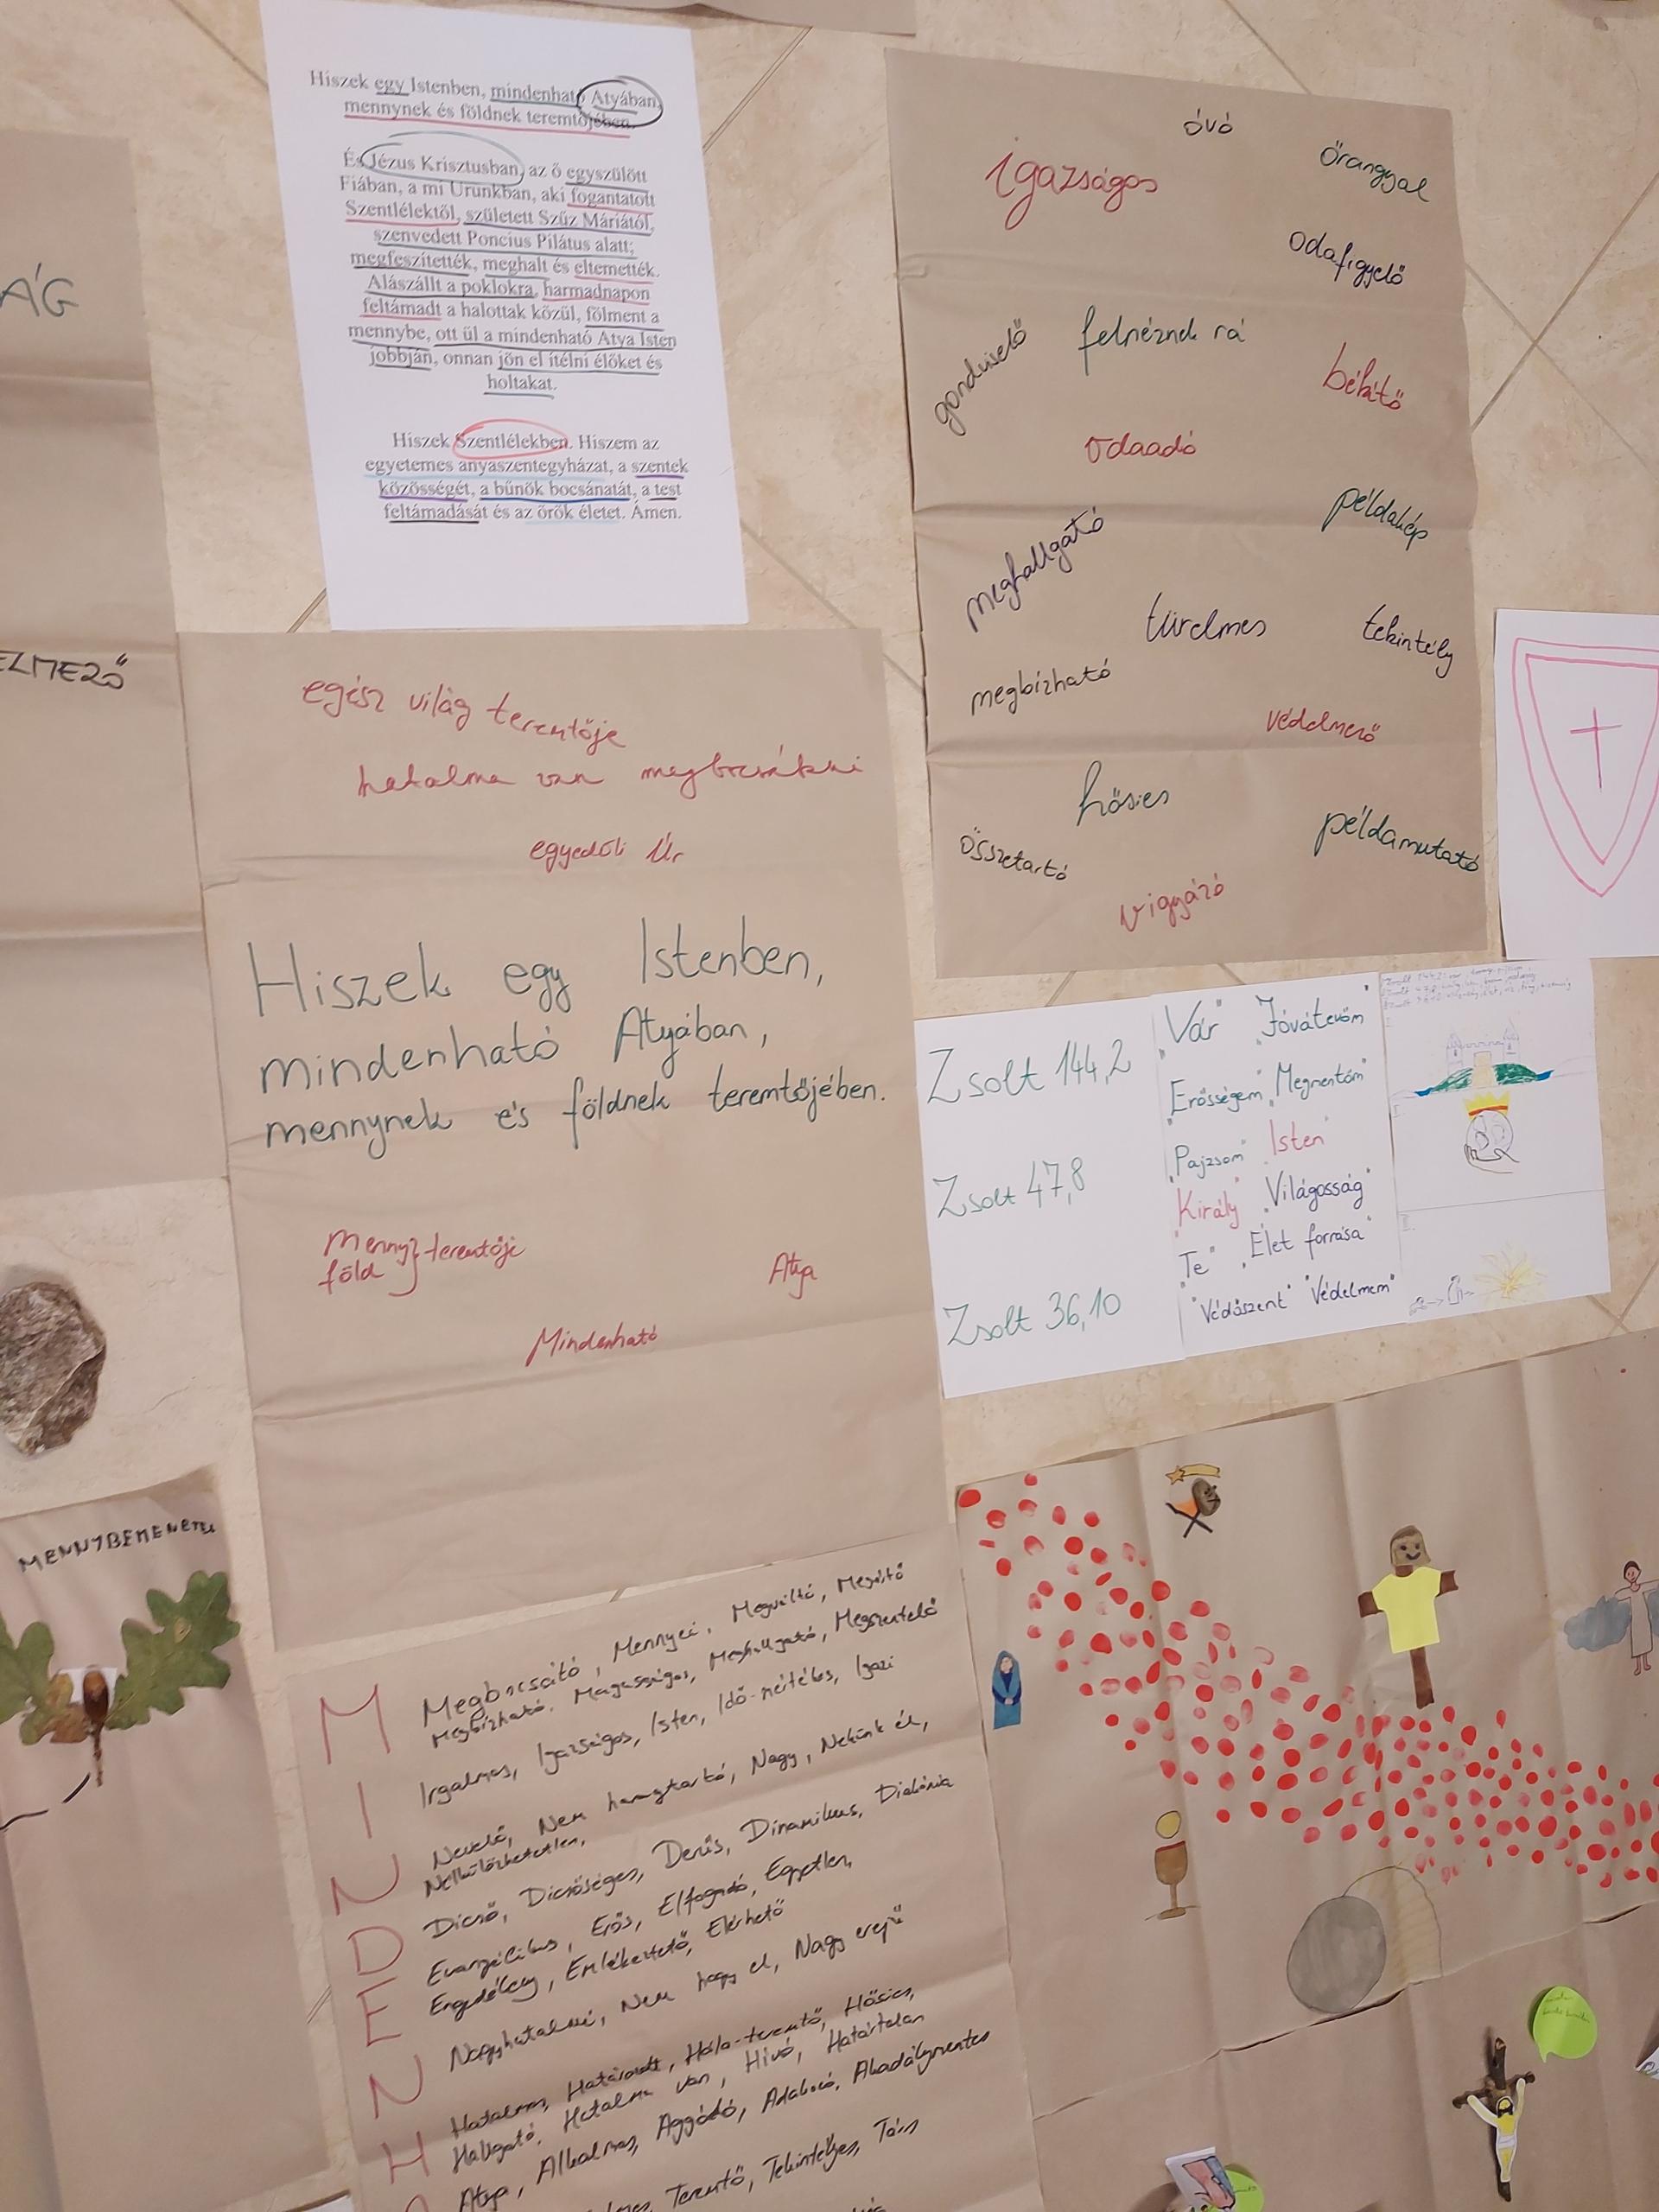 ÁG
Hiszek egy Istenben, mindenható Atyában,
mennynek és földnek teremtőjében.
És Jézus Krisztusban, az ő egyszülött
Fiában, a mi Urunkban, aki fogantatott
Szentlélektől, született Szűz Máriától,
szenvedett Poncius Pilátus alatt;
megfeszítették, meghalt és eltemették.
Alászállt a poklokra, harmadnapon
feltámadt a halottak közül, fölment a
mennybe, ott ül a mindenható Atya Isten
jobbján, onnan jön el ítélni élőket és
holtakat.
Hiszek Szentlélekben. Hiszem az
egyetemes anyaszentegyházat, a szentek
közösségét, a bűnök bocsánatát, a test
feltámadását és az örök életet. Ámen.
óvó
igazságos
őrangyal
odafigyelő
gondviselő
felnéznek rá
békítő
odaadó
példakép
meghallgató
türelmes
tekintély
megbízható
védelmező
hősies
összetartó
példamutató
vigyázó
ELMEZŐ
egész világ teremtője
hatalma van megbocsátani
egyedüli Úr
Hiszek egy Istenben,
mindenható Atyában,
mennynek és földnek teremtőjében.
Menny
föld } teremtője
Atya
Mindenható
Zsolt 144,2
Zsolt 47,8
Zsolt 36,10
"Vár" "Jóvátevőm"
"Erősségem" "Megmentőm"
"Pajzsom" "Isten"
"Király" "Világosság"
"Te" "Élet forrása"
"Védőszent" "Védelmem"
MENNYBEMENETEL
M Megbocsátó, Mennyei, Megváltó, Megértő
Megbízható, Magasságos, Meghallgató, Megszentelő
I Irgalmas, Igazságos, Isten, Idő-mértékes, Igazi
N Nevelő, Nem haragtartó, Nagy, Nekünk él,
Nélkülözhetetlen,
D Dicső, Dicsőséges, Derűs, Dinamikus, Diakónia
E Evangélikus, Erős, Elfogadó, Egyetlen,
Engedékeny, Emlékeztető, Elérhető
N Nagyhatalmú, Nem hagy el, Nagy erejű
H Hatalmas, Határozott, Hála-teremtő, Hősies,
Hallgató, Hatalma van, Hívó, Határtalan
Atya, Alkalmas, Aggódó, Adakozó, Akadálymentes
Teremtő, Tekintélyes, Társ